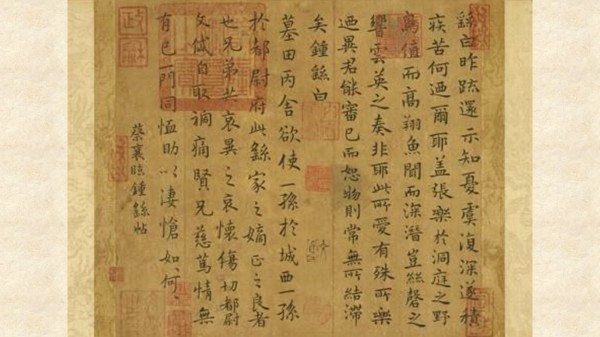 繇白昨疏還示知憂虞復深遂積
疾苦何迺爾耶蓋張樂於洞庭之野
鳥值而高翔魚聞而深潛豈絲磬之
響雲英之奏非耶此所愛有殊所樂
迺異君能審己而恕物則常無所結滯
矣鍾繇白
墓田丙舍欲使一孫於城西一孫
於都尉府此繇家之嫡正之良者
也兄弟共哀異之哀懷傷切都尉
文俶自取禍痛賢兄慈篤情無
有已一門同恤助以凄愴如何
蔡襄臨鍾繇帖